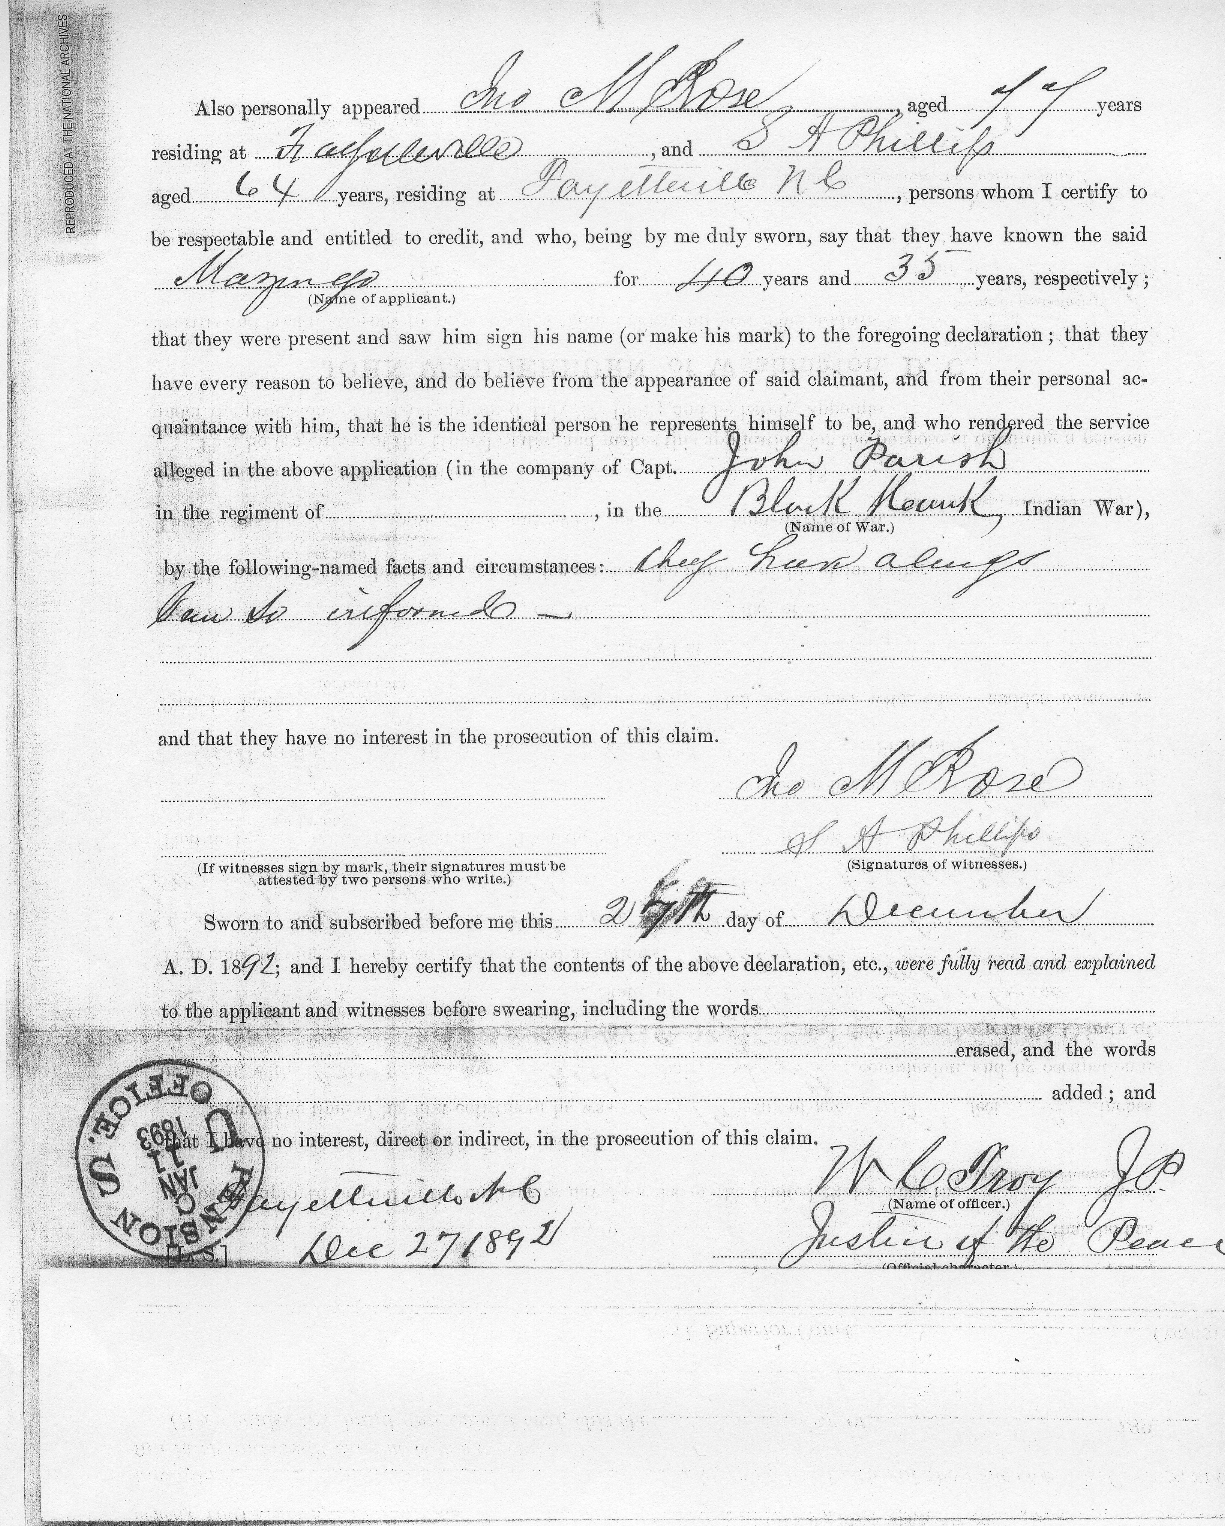 REPRODUCED AT THE NATIONAL ARCHIVES
Also personally appeared Jno M Rose, aged 77 years
residing at Fayetteville, and S A Phillips
aged 64 years, residing at Fayetteville N C, persons whom I certify to
be respectable and entitled to credit, and who, being by me duly sworn, say that they have known the said
Mazingo for 40 years and 35 years, respectively;
(Name of applicant.)
that they were present and saw him sign his name (or make his mark) to the foregoing declaration; that they
have every reason to believe, and do believe from the appearance of said claimant, and from their personal ac-
quaintance with him, that he is the identical person he represents himself to be, and who rendered the service
alleged in the above application (in the company of Capt. John Parish
in the regiment of , in the Black Hawk, Indian War),
(Name of War.)
by the following-named facts and circumstances: they have always
been so informed —
and that they have no interest in the prosecution of this claim.
Jno M Rose
S A Phillips
(If witnesses sign by mark, their signatures must be
attested by two persons who write.)
(Signatures of witnesses.)
Sworn to and subscribed before me this 27th day of December
A. D. 1892; and I hereby certify that the contents of the above declaration, etc., were fully read and explained
to the applicant and witnesses before swearing, including the words
erased, and the words
added; and
that I have no interest, direct or indirect, in the prosecution of this claim.
U S PENSION OFFICE.
JAN 11 1893
Fayetteville N C
W C Troy J.P.
(Name of officer.)
[L. S.]
Dec 27 1892
Justice of the Peace
(Official character.)